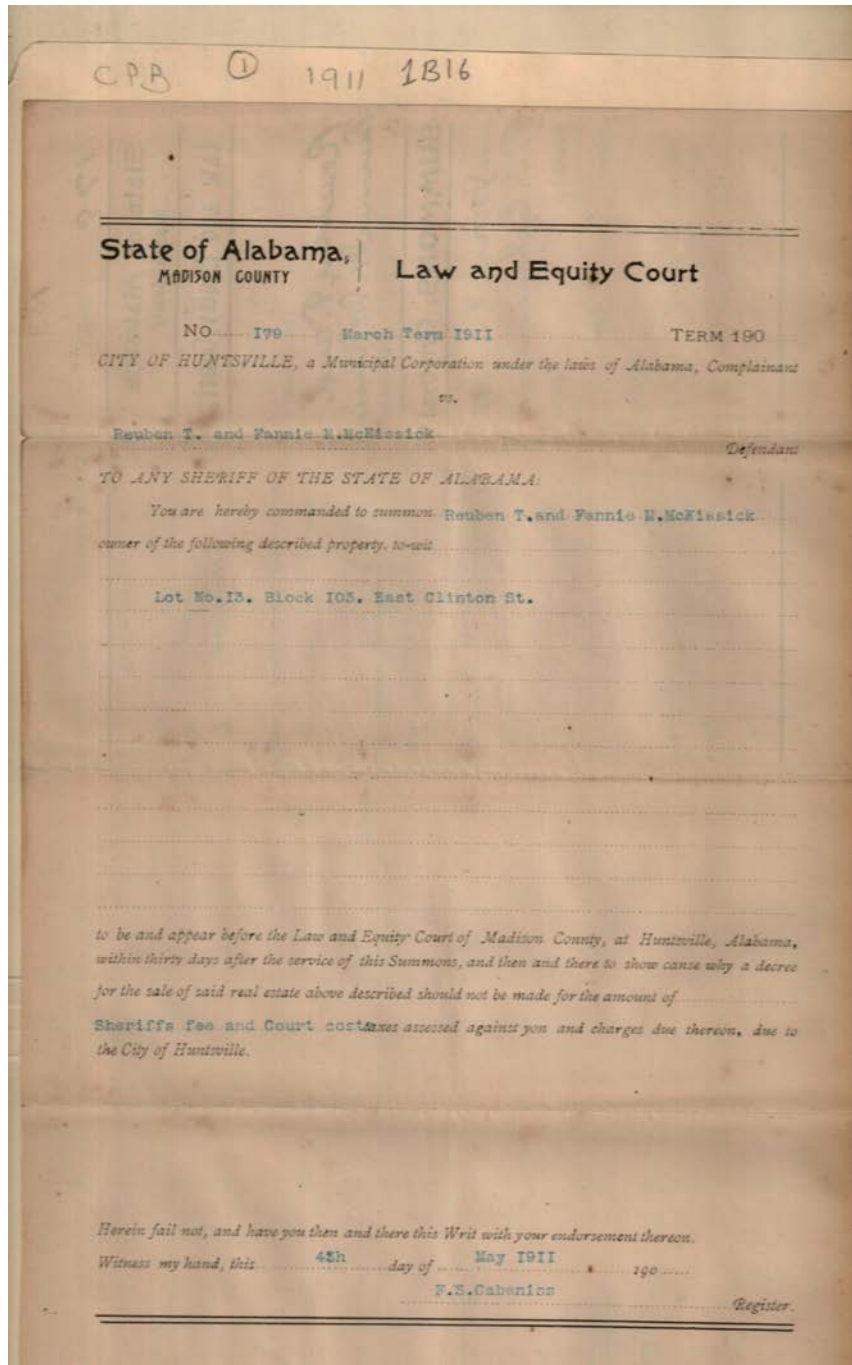 CPB ① 1911 1B16
State of Alabama, Law and Equity Court
MADISON COUNTY
NO I79 March Term I9II TERM 190
CITY OF HUNTSVILLE, a Municipal Corporation under the laws of Alabama, Complainant
vs.
Reuben T. and Fannie M.McKissick
Defendant
TO ANY SHERIFF OF THE STATE OF ALABAMA:
You are hereby commanded to summon Reuben T.and Fannie M.McKissick
owner of the following described property, to-wit
Lot No.I3. Block I03. East Clinton St.
to be and appear before the Law and Equity Court of Madison County, at Huntsville, Alabama,
within thirty days after the service of this Summons, and then and there to show cause why a decree
for the sale of said real estate above described should not be made for the amount of
Sheriffs fee and Court cost taxes assessed against you and charges due thereon, due to
the City of Huntsville.
Herein fail not, and have you then and there this Writ with your endorsement thereon.
Witness my hand, this 4th day of May I9II 190
F.S.Cabaniss
Register.